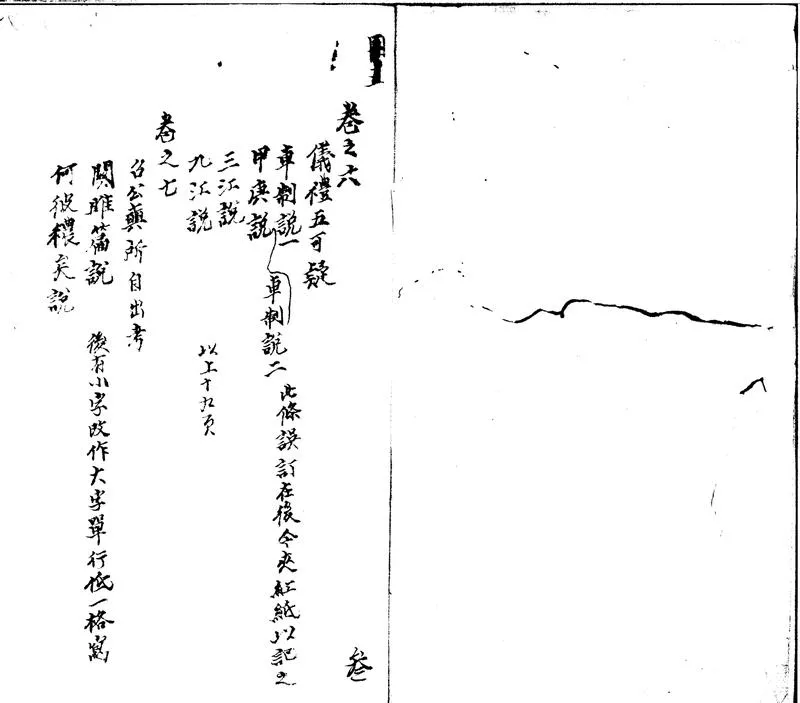 卷之六
儀禮五可疑
車制說一
車制說二
此條誤訂在後今夾紅紙以記之
甲庚說
三江說
九江說
以上十九頁
卷之七
召公奭所自出考
關雎篇說
後有小字改作大字單行低一格寫
何彼穠矣說
叄